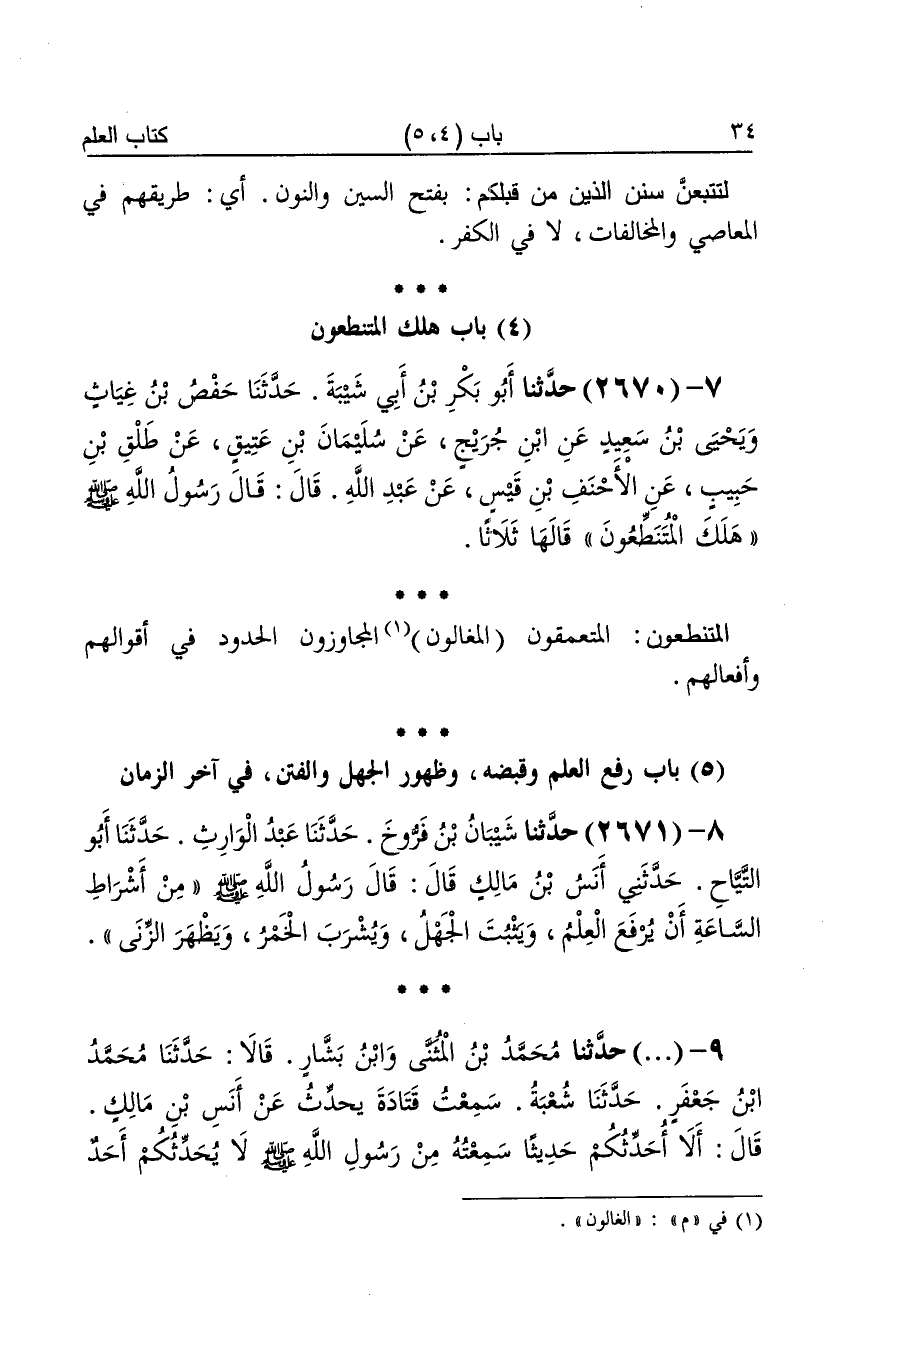 ٣٤ باب (٤، ٥) كتاب العلم
لتتبعنَّ سنن الذين من قبلكم: بفتح السين والنون. أي: طريقهم في
المعاصي والمخالفات، لا في الكفر.
* * *
(٤) باب هلك المتنطعون
٧- (٢٦٧٠) حدَّثنا أَبُو بَكْرِ بْنُ أَبِي شَيْبَةَ. حَدَّثَنَا حَفْصُ بْنُ غِيَاثٍ
وَيَحْيَى بْنُ سَعِيدٍ عَنِ ابْنِ جُرَيْجٍ، عَنْ سُلَيْمَانَ بْنِ عَتِيقٍ، عَنْ طَلْقِ بْنِ
حَبِيبٍ، عَنِ الْأَحْنَفِ بْنِ قَيْسٍ، عَنْ عَبْدِ اللَّهِ. قَالَ: قَالَ رَسُولُ اللَّهِ ﷺ
«هَلَكَ الْمُتَنَطِّعُونَ» قَالَهَا ثَلَاثًا.
* * *
المتنطعون: المتعمقون (المغالون)(١) المجاوزون الحدود في أقوالهم
وأفعالهم.
* * *
(٥) باب رفع العلم وقبضه، وظهور الجهل والفتن، في آخر الزمان
٨- (٢٦٧١) حدَّثنا شَيْبَانُ بْنُ فَرُّوخَ. حَدَّثَنَا عَبْدُ الْوَارِثِ. حَدَّثَنَا أَبُو
التَّيَّاحِ. حَدَّثَنِي أَنَسُ بْنُ مَالِكٍ قَالَ: قَالَ رَسُولُ اللَّهِ ﷺ «مِنْ أَشْرَاطِ
السَّاعَةِ أَنْ يُرْفَعَ الْعِلْمُ، وَيَثْبُتَ الْجَهْلُ، وَيُشْرَبَ الْخَمْرُ، وَيَظْهَرَ الزِّنَى».
* * *
٩- (...) حدَّثنا مُحَمَّدُ بْنُ الْمُثَنَّى وَابْنُ بَشَّارٍ. قَالَا: حَدَّثَنَا مُحَمَّدُ
ابْنُ جَعْفَرٍ. حَدَّثَنَا شُعْبَةُ. سَمِعْتُ قَتَادَةَ يحدِّثُ عَنْ أَنَسِ بْنِ مَالِكٍ.
قَالَ: أَلَا أُحَدِّثُكُمْ حَدِيثًا سَمِعْتُهُ مِنْ رَسُولِ اللَّهِ ﷺ لَا يُحَدِّثُكُمْ أَحَدٌ
(١) في «م»: «الغالون».